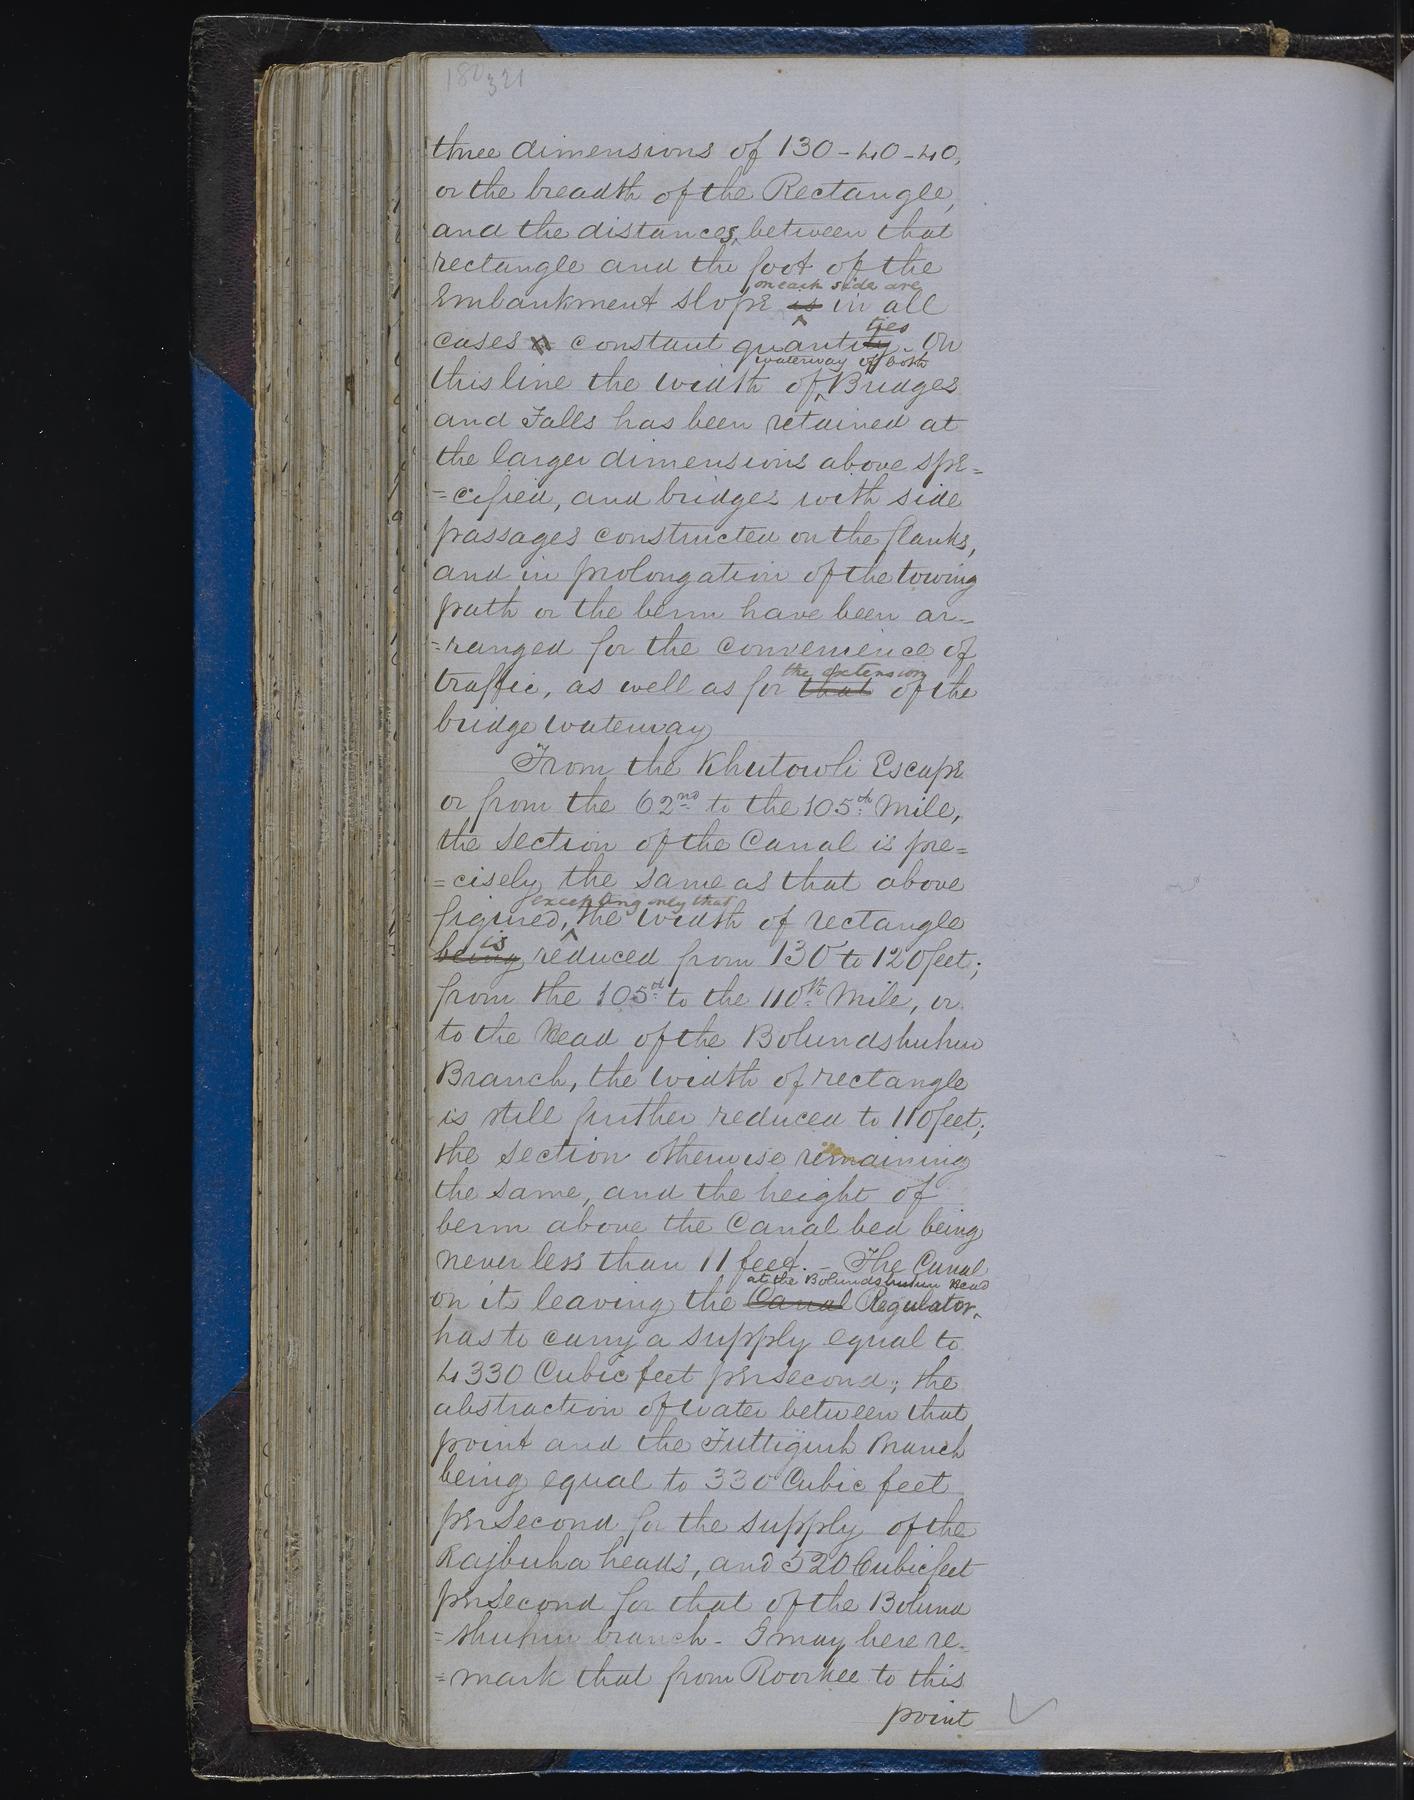 321
three dimensions of 130-40-40,
or the breadth of the Rectangle,
and the distances, between that
rectangle and the foot of the
on each side are
Embankment slope is in all
ties
cases a constant quantity. On
waterway of both
this line the width of Bridges
and Falls has been retained at
the larger dimensions above spe=
=cified, and bridges with side
passages constructed on the flanks,
and in prolongation of the towing
path or the berm have been ar=
=ranged for the convenience of
the extension
traffic, as well as for that of the
bridge waterway
From the Khutowli Escape
or from the 62nd to the 105th Mile,
the section of the Canal is pre=
=cisely the same as that above
excepting only that
figured, the width of rectangle
is
being reduced from 130 to 120 feet;
from the 105th to the 110th Mile, or
to the Head of the Bolundshuhur
Branch, the width of rectangle
is still further reduced to 110 feet;
the section otherwise remaining
the same, and the height of
berm above the Canal bed being
never less than 11 feet. - The Canal
at the Bolundshuhur Head
on its leaving the Canal Regulator
has to carry a supply equal to
4330 Cubic feet per second; the
abstraction of water between that
point and the Futtigurh Branch
being equal to 330 Cubic feet
per second for the supply of the
Rajbuha heads, and 520 Cubic feet
per second for that of the Bolund
=shuhur branch - I may here re=
=mark that from Roorkee to this
point